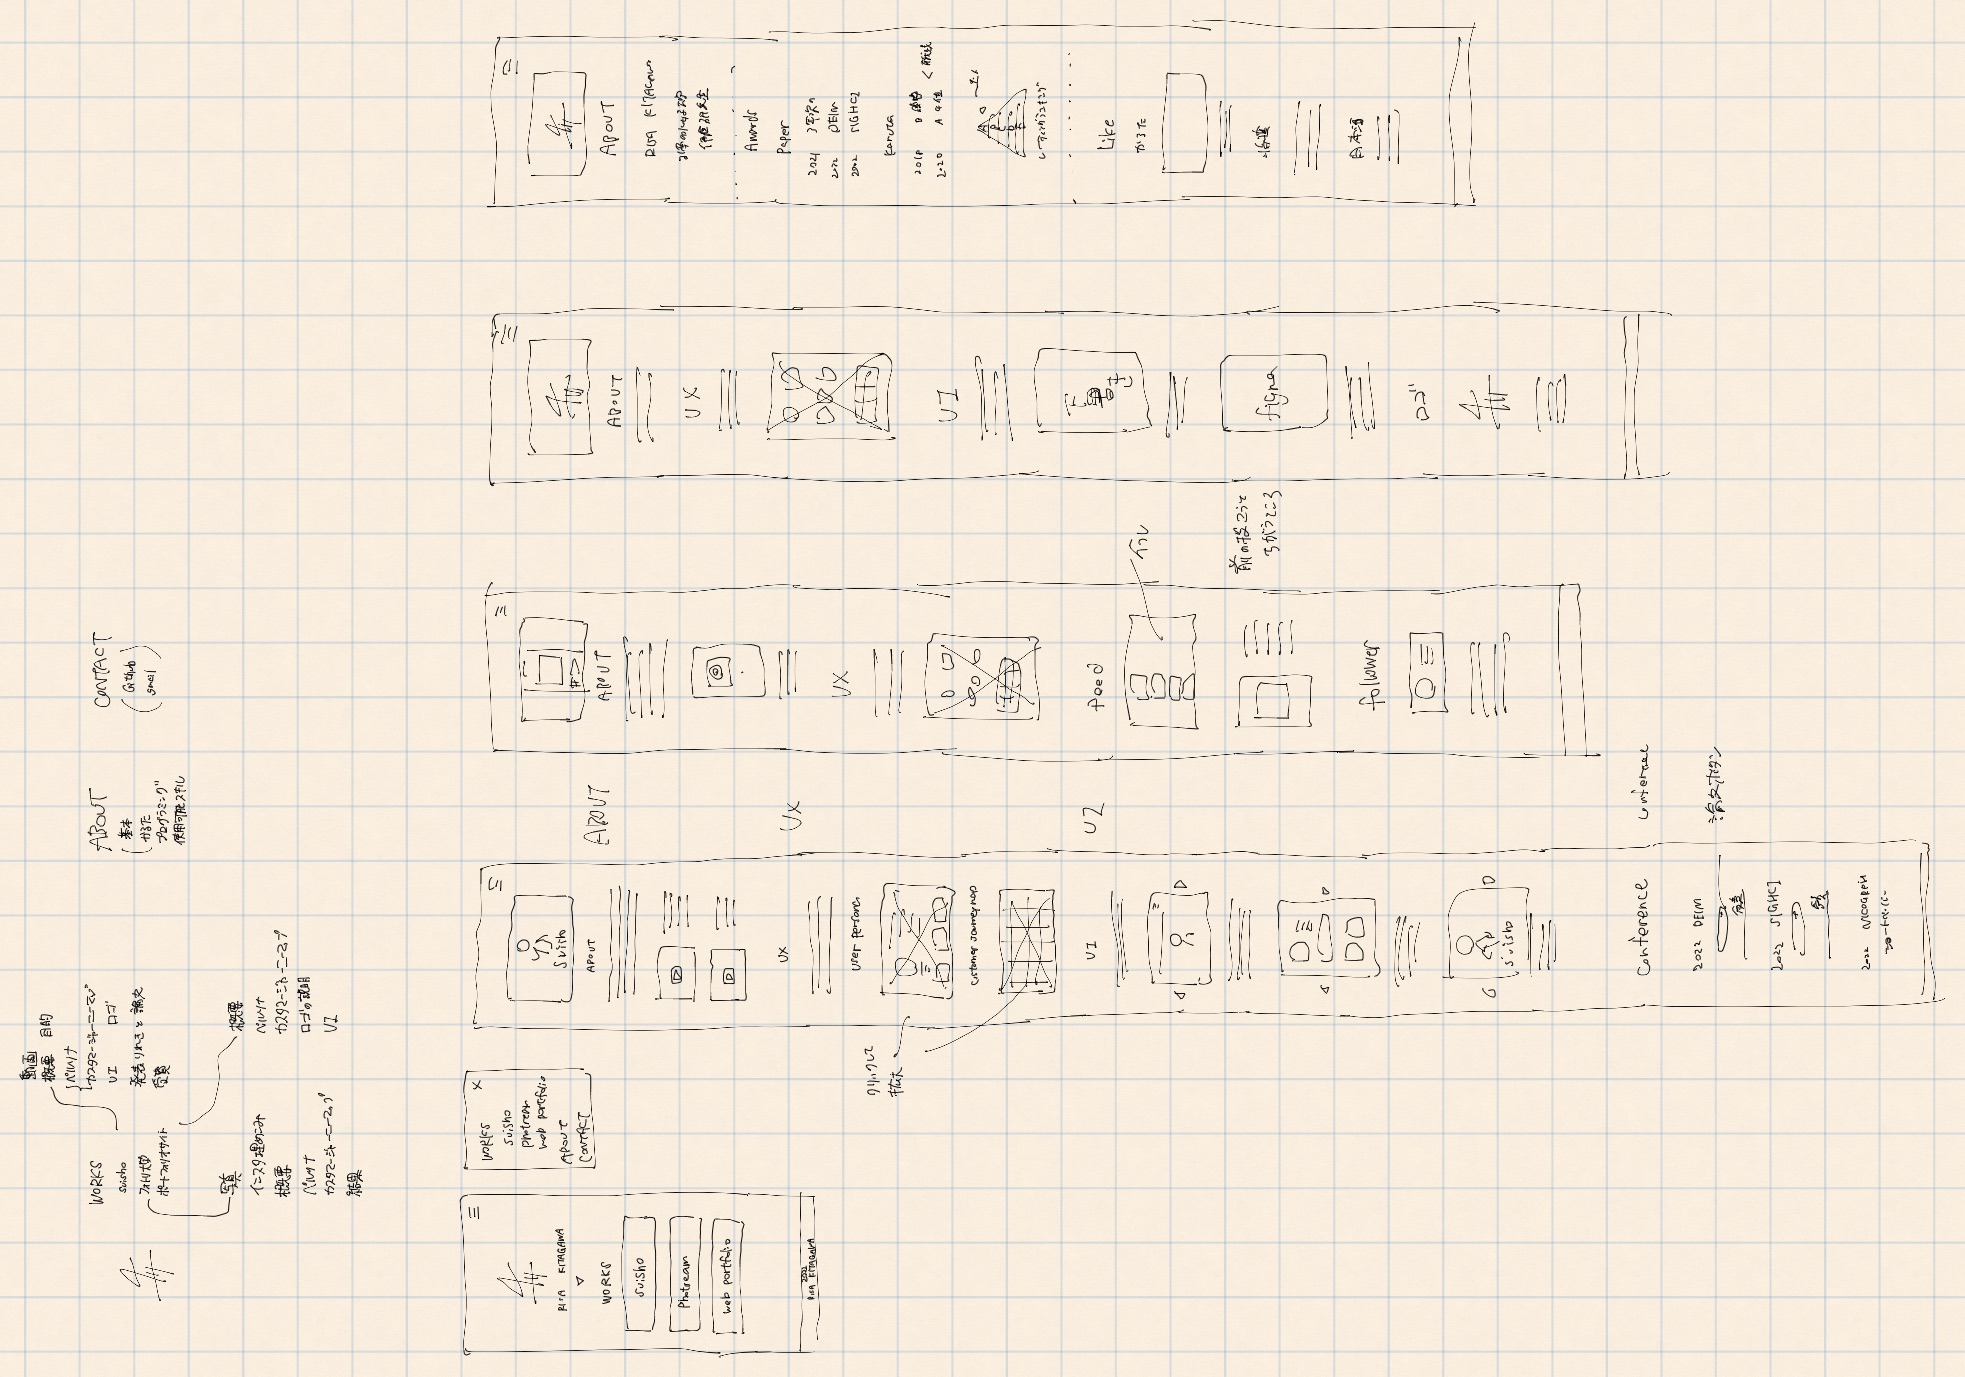 動画
概要 目的
ペルソナ
カスタマージャーニーマップ
UI ロゴ
発表りれきと論文
受賞
WORKS
suisho
ポートフォリオサイト
写真
インスタ埋めこみ
概要
ペルソナ
カスタマージャーニーマップ
結果
概要
ペルソナ
カスタマージャーニーマップ
ロゴの説明
UI
ABOUT
基本
かるた
プログラミング
使用可能スキル
CONTACT
Github
gmail
RISA KITAGAWA
WORKS
suisho
Photream
web portfolio
2022
RISA KITAGAWA
WORKS
X
suisho
photream
web portfolio
ABOUT
CONTACT
Suisho
ABOUT
UX
user persona
クリックして
拡大
customer journeymap
UI
suisho
Conference
2022 DEIM
2022 SIGHCI
2022 NICOGRAPH
ショートペーパー
ABOUT
UX
UI
conference
論文ボタン
ABOUT
UX
feed
follower
前の投こうと
ちがうところ
ABOUT
UX
UI
下
書
き
figma
ロゴ
ABOUT
RISA KITAGAWA
お茶の水女子大学
伊藤研究室
Awards
Paper
2021 3年次の
2022 DEIM
2022 SIGHCI
Karuta
2018
2020 A 4位
A
B
C
D
E
Like
かるた
日本酒